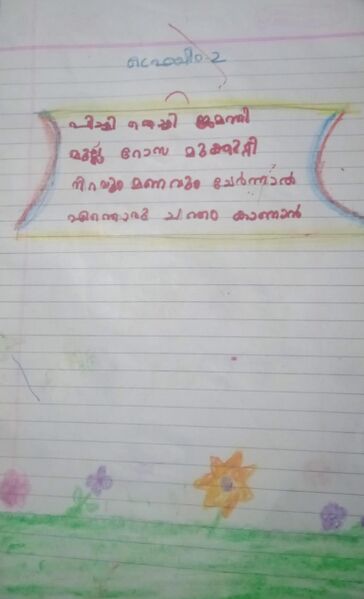 ഫ്രെയിം-2
പിച്ചി തെച്ചി ജമന്തി
മുല്ല റോസ മുക്കുറ്റി
നിറവും മണവും ചേർന്നാൽ
എന്തൊരു ചന്തം കാണാൻ